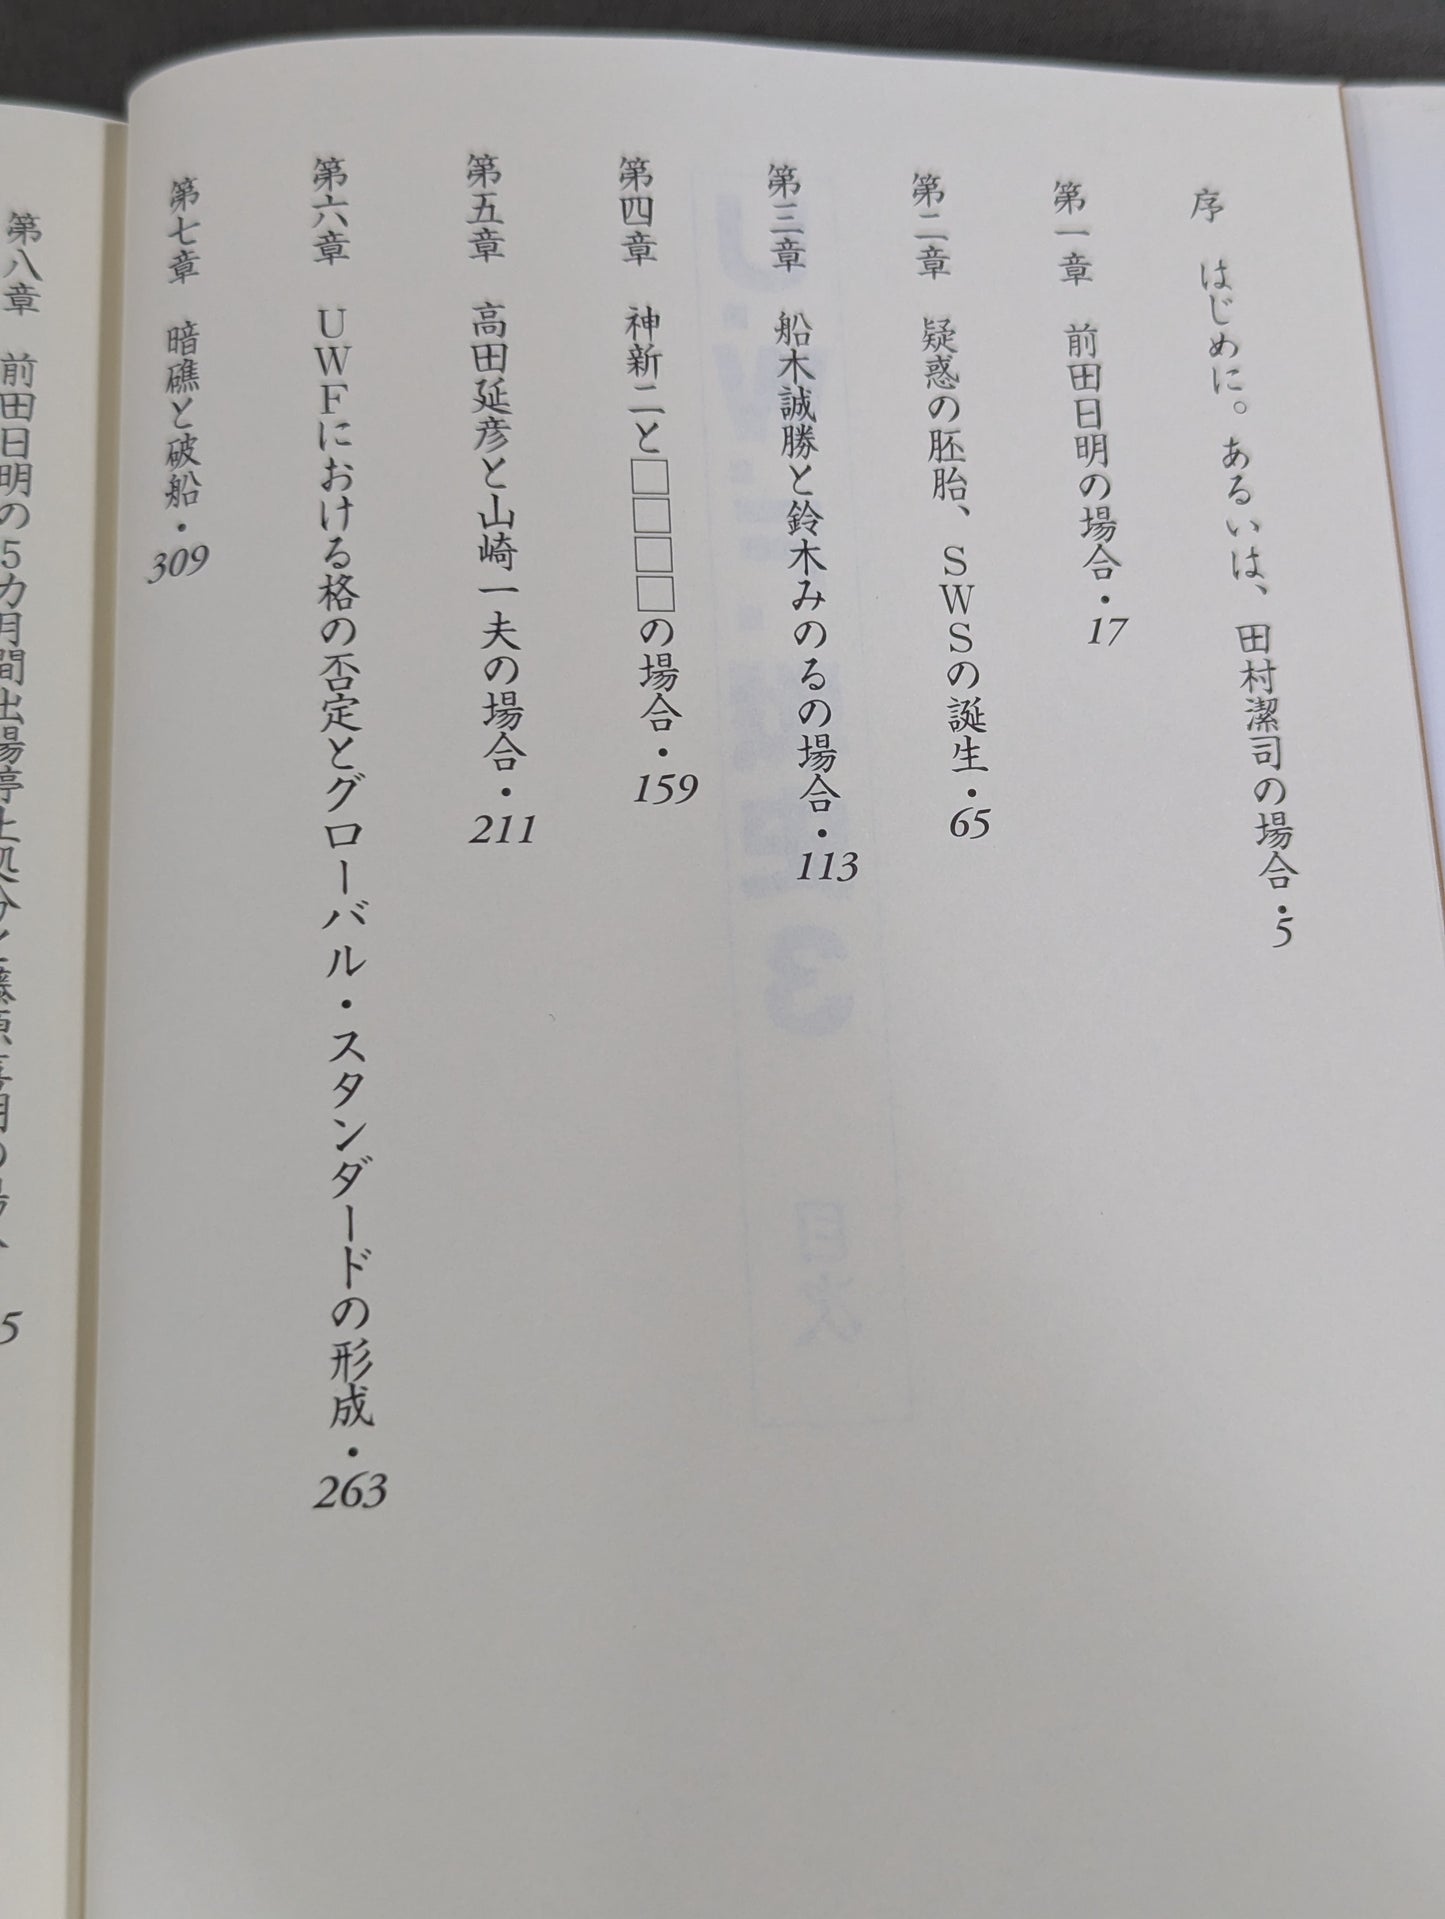 序　はじめに。あるいは、田村潔司の場合・5
第一章　前田日明の場合・17
第二章　疑惑の胚胎、SWSの誕生・65
第三章　船木誠勝と鈴木みのるの場合・113
第四章　神新二と□□□□の場合・159
第五章　高田延彦と山崎一夫の場合・211
第六章　UWFにおける格の否定とグローバル・スタンダードの形成・263
第七章　暗礁と破船・309
第八章　前田日明の5カ月間出場停止処分と藤原喜明の